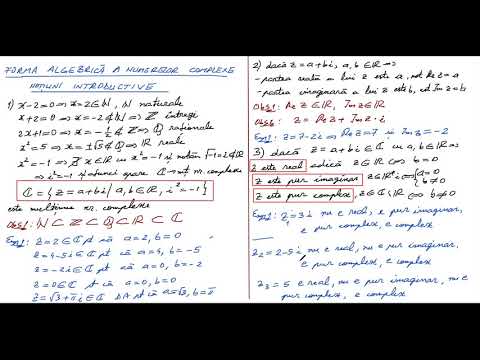 FORMA ALGEBRICĂ A NUMERELOR COMPLEXE
NOȚIUNI INTRODUCTIVE
1) x-2=0 ⇒ x=2∈ℕ, ℕ naturale
x+2=0 ⇒ x=-2∉ℕ ⇒ ℤ întregi
2x+1=0 ⇒ x=-1/2∉ℤ ⇒ ℚ raționale
x²=5 ⇒ x=±√5∉ℚ ⇒ ℝ reale
x²=-1 ⇒ ∄x∈ℝ și notăm √-1=i∉ℝ
⇒ i²=-1 și atunci apare ℂ nr. complexe
ℂ={z=a+bi | a,b∈ℝ, i²=-1}
este mulțime nr. complexe
Obs1: ℕ⊂ℤ⊂ℚ⊂ℝ⊂ℂ
Exp1: z=2∈ℂ pt că a=2, b=0
z=4-5i∈ℂ pt că a=4, b=-5
z=-2i∈ℂ pt că a=0, b=-2
z=0∈ℂ pt că a=0, b=0
z=√3+πi∈ℂ DA pt că a=√3, b=π
2) dacă z=a+bi, a,b∈ℝ ⇒
- partea reală a lui z este a, not Re z=a
- partea imaginară a lui z este b, not Im z=b
Obs1: Re z∈ℝ, Im z∈ℝ
Obs2: z = Re z + Im z·i
Exp1: z=7-2i ⇒ Re z=7 și Im z=-2
3) dacă z=a+bi∈ℂ cu a,b∈ℝ ⇒
z este real adică z∈ℝ ⇔ b=0
z este pur imaginar z∈iℝ ⇔ {a=0 b≠0
z este pur complex, z∈ℂ\ℝ ⇔ b≠0
Exp1: z₁=3i nu e real, e pur imaginar,
e pur complex, e complex
z₂=2-5i nu e real, nu e pur imaginar,
e pur complex, e complex
z₃=5 e real, nu e pur imaginar, nu e
pur complex, e complex